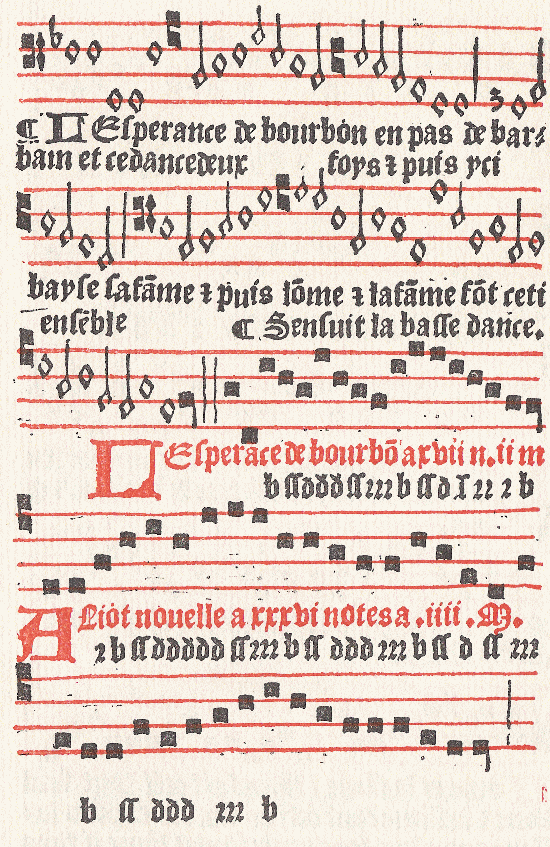 ¶ LEsperance de bourbon en pas de bar⸗
bain et cedancedeux foys ⁊ puis yci
bayse safāme ⁊ puis lōme ⁊ lafāme fōt ceti
ensēble ¶ Sensuit la basse dance.
LEsperāce de bourbō a xvii n. ii m
b ss ddd ss rrr b ss d r rr ⁊ b
ALiōt nouelle a xxxvi notes a .iiii .M.
⁊ b ss dddddd ss rrr b ss ddd rrr b ss d ss rrr
b ss ddd rrr b